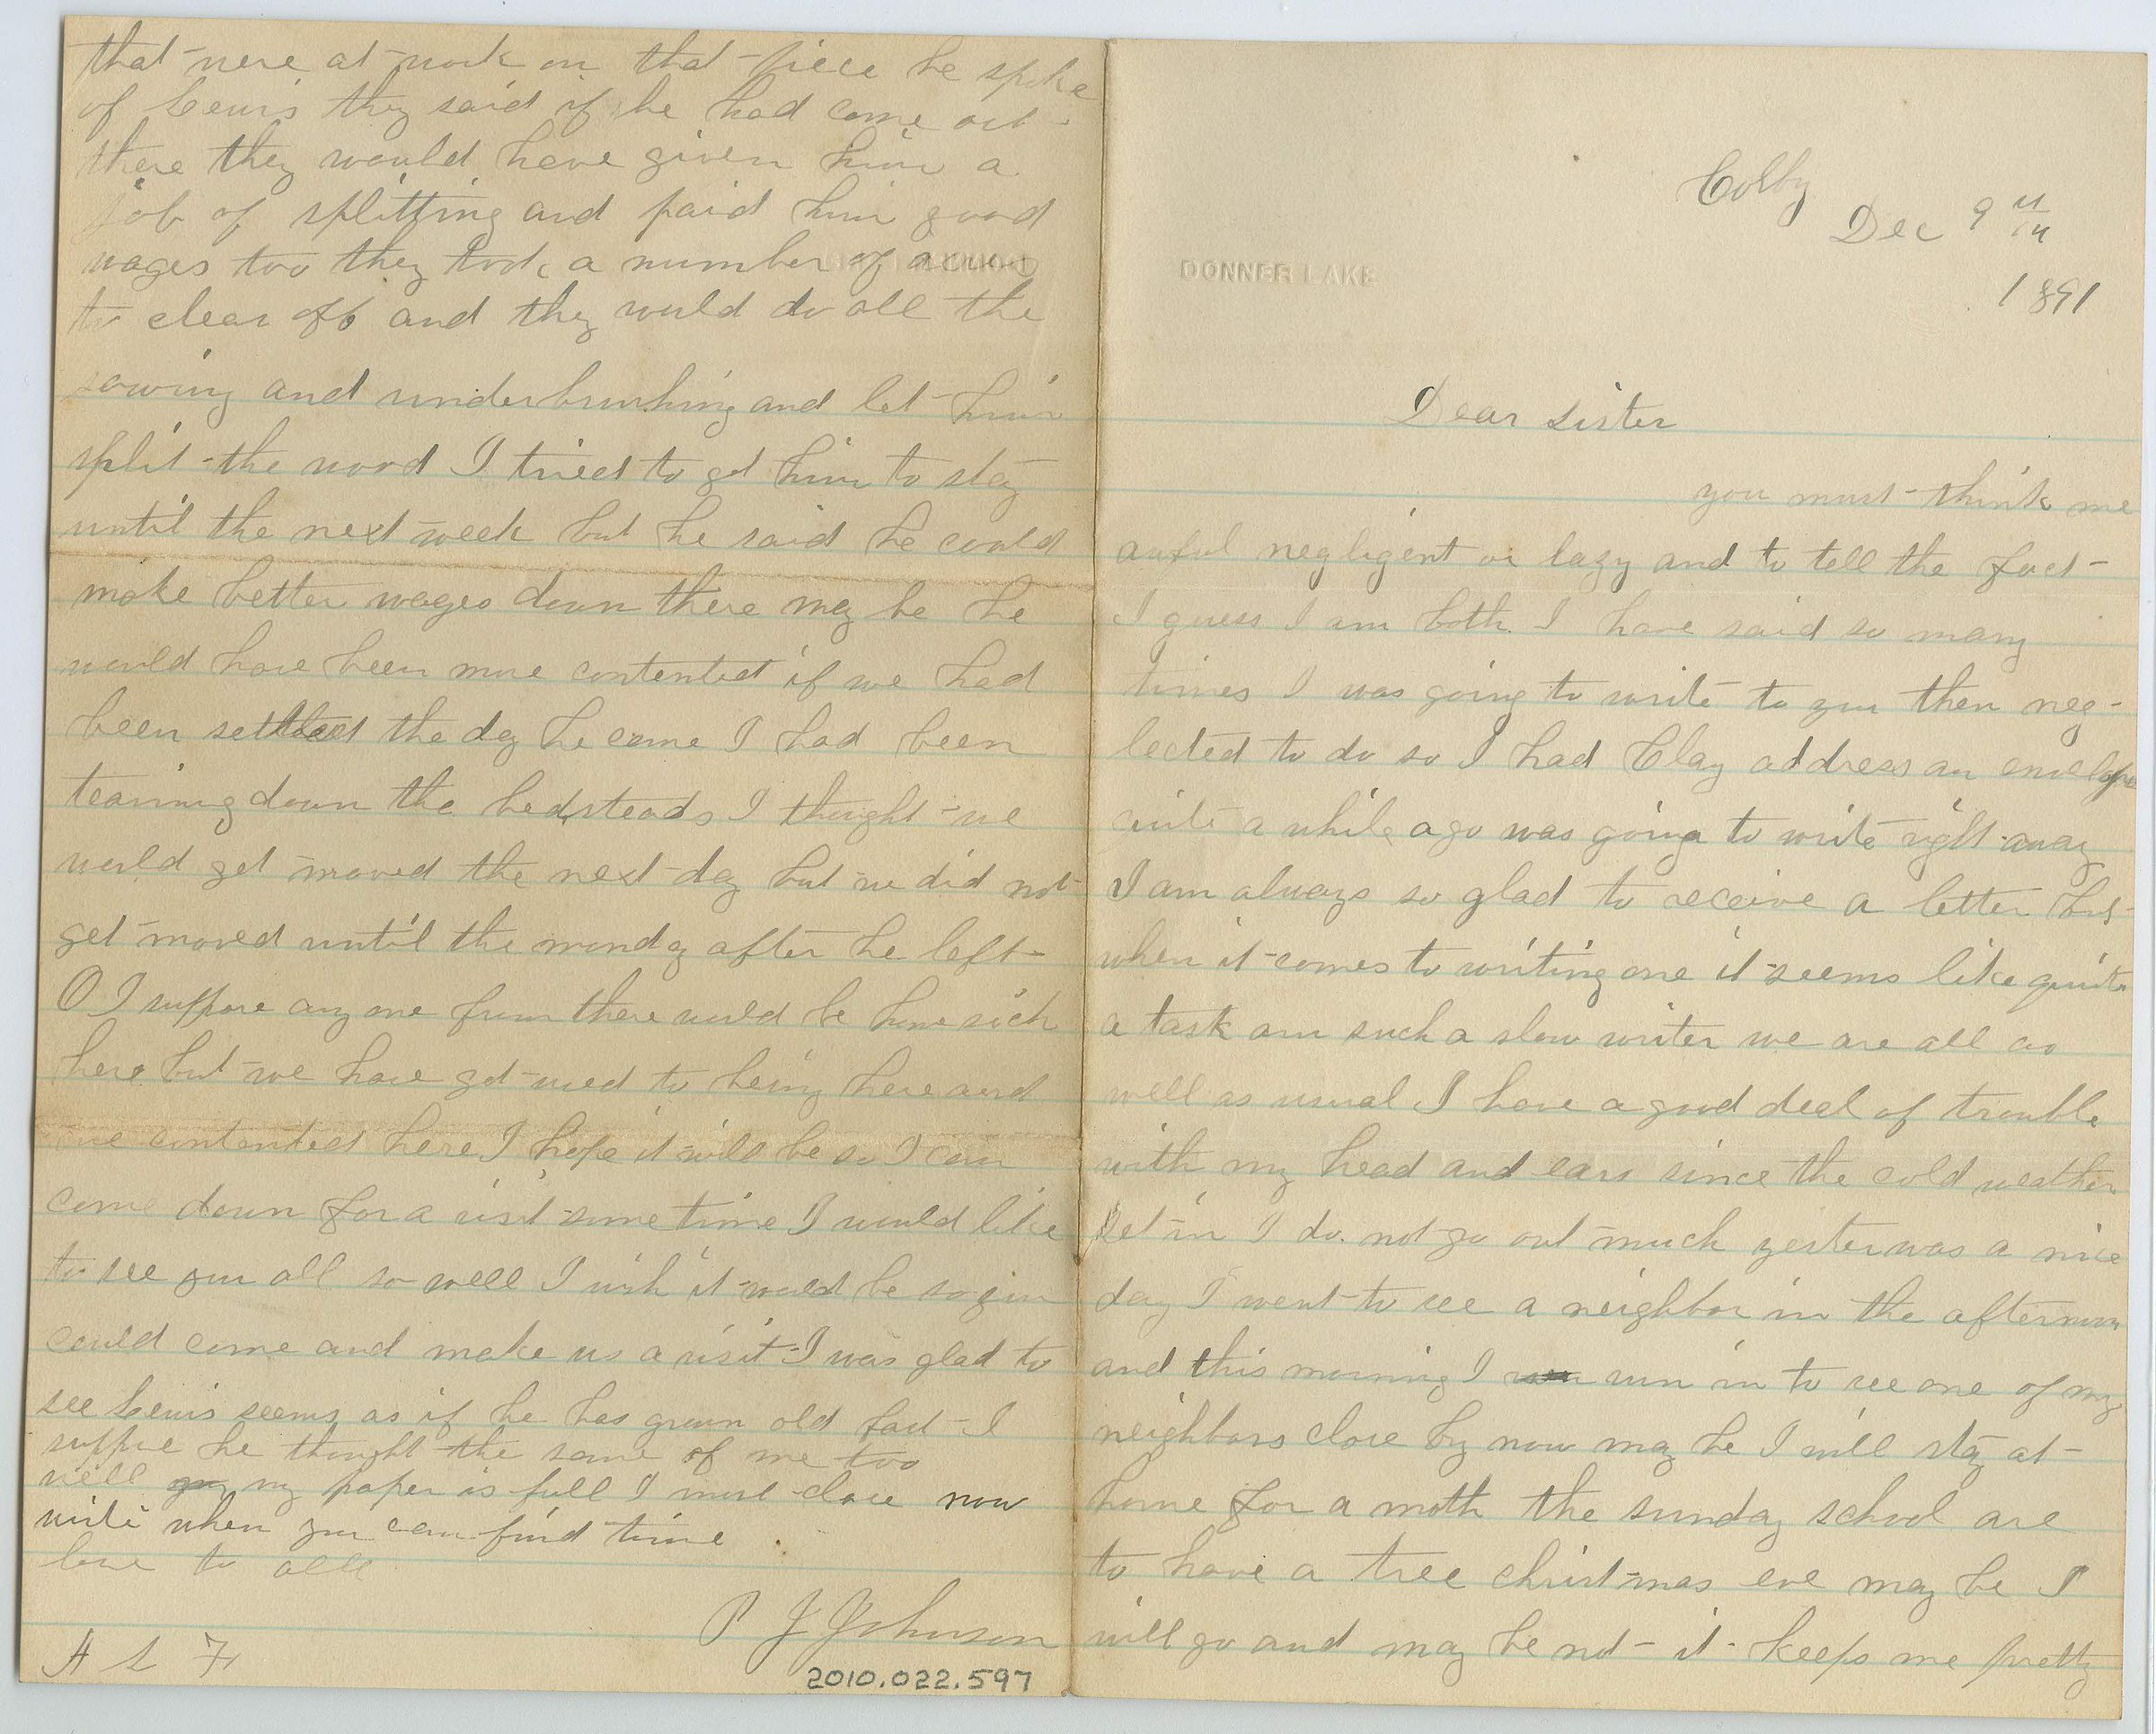 Colby Dec 9th
1891
DONNER LAKE
Dear sister
you must think me
awful negligent or lazy and to tell the fact
I guess I am both I have said so many
times I was going to write to you then neg-
lected to do so I had Clay address an envelope
quite a while ago was going to write right away
I am always so glad to receive a letter but
when it comes to writing one it seems like quite
a task am such a slow writer we are all as
well as usual I have a good deal of trouble
with my head and ears since the cold weather
set in I do not go out much yester was a nice
day I went to see a neighbor in the afternoon
and this morning I run in to see one of my
neighbors close by now may be I will stay at
home for a moth the sunday school are
to have a tree christmas eve may be I
will go and may be not it keeps me pretty
that were at work on that piece he spoke
of Lewis they said if he had come out
there they would have given him a
job of splitting and paid him good
wages too they took a number of acres
to clear off and they would do all the
sawing and underbrushing and let him
split the wood I tried to get him to stay
until the next week but he said he could
make better wages down there may be he
would have been more contented if we had
been settled the day he came I had been
tearing down the bedsteads I thought we
would get moved the next day but we did not
get moved until the monday after he left
O I suppose any one from there would be home sick
here but we have got used to being here and
are contented here I hope it will be so I can
come down for a visit some time I would like
to see you all so well I wish it would be so you
could come and make us a visit I was glad to
see Lewis seems as if he has grown old fast I
suppose he thought the same of me too
well my paper is full I must close now
write when you can find time
love to all
P J Johnson
A L F
2010.022.597